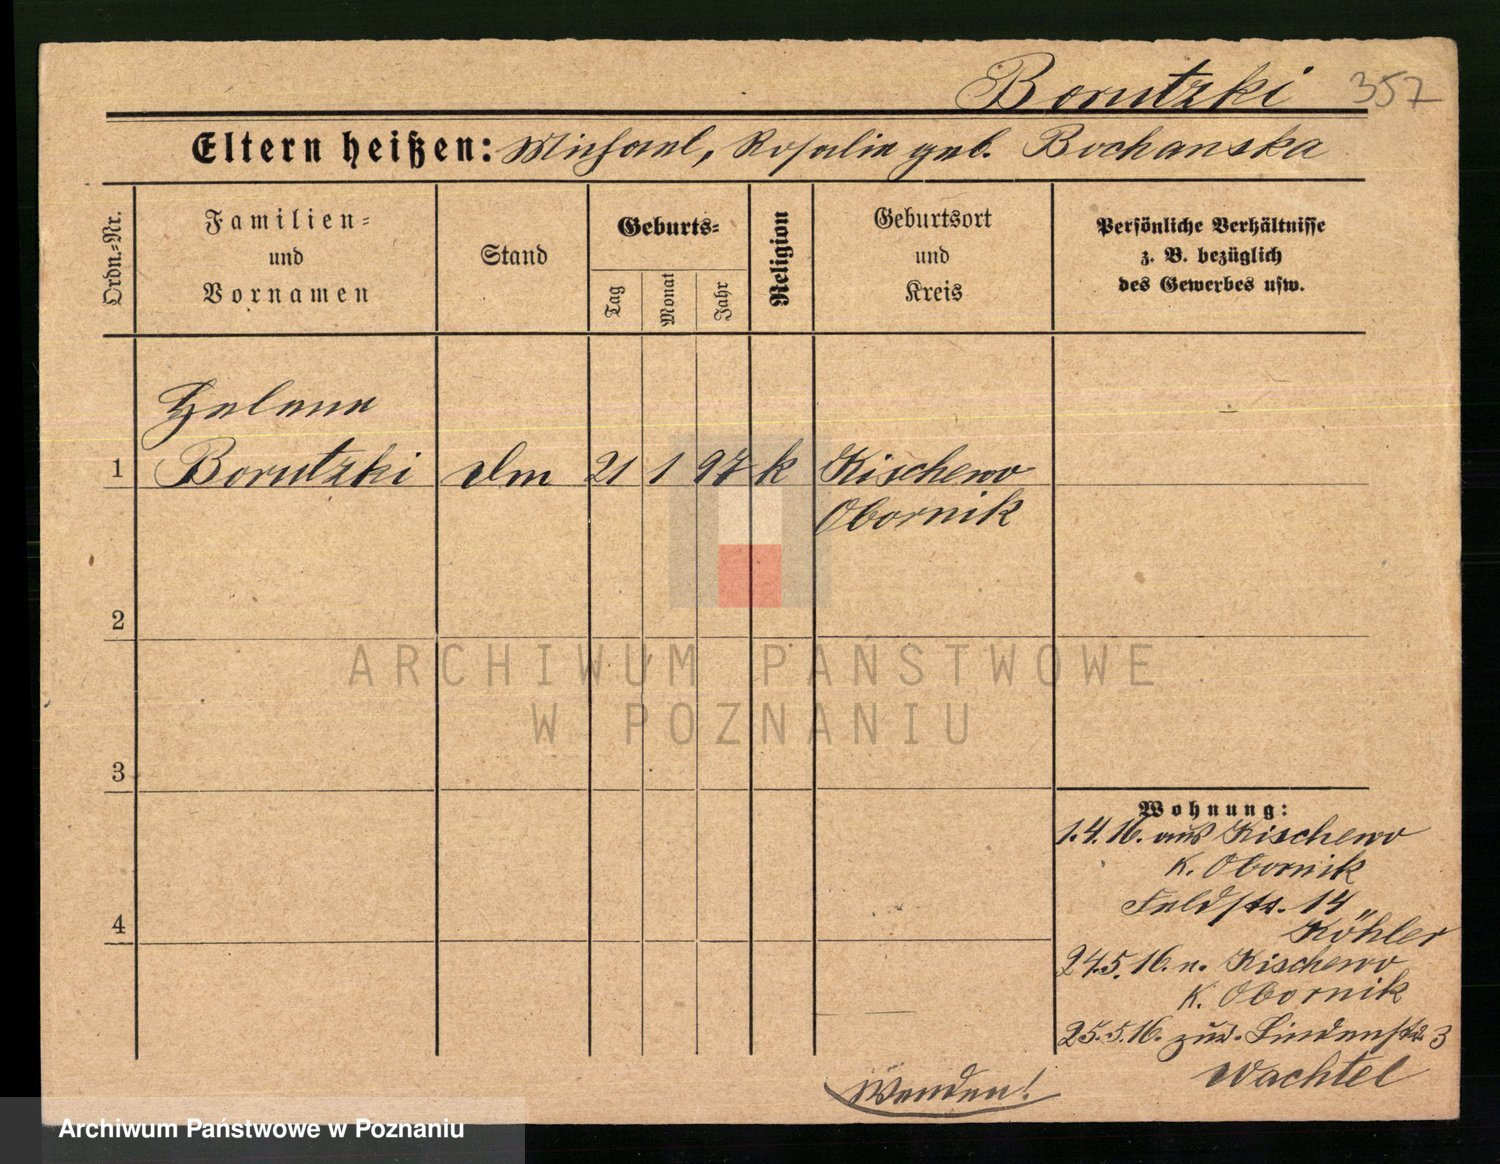 Borutzki 357
Eltern heißen: Michael, Rosalie geb. Bochanska
Ordn.-Nr.
Familien-
und
Vornamen
Stand
Geburts-
Tag
Monat
Jahr
Religion
Geburtsort
und
Kreis
Persönliche Verhältnisse
z. B. bezüglich
des Gewerbes usw.
Helene
1 Borutzki Dm 21 1 97 k Kischewo
Obornik
2
3
4
Wohnung:
1.4.16. aus Kischewo
K. Obornik
Feldstr. 14
Köhler
24.5.16. n. Kischewo
K. Obornik
25.5.16. zur. Lindenstr. 3
Wachtel
Wenden!
ARCHIWUM PAŃSTWOWE
W POZNANIU
Archiwum Państwowe w Poznaniu